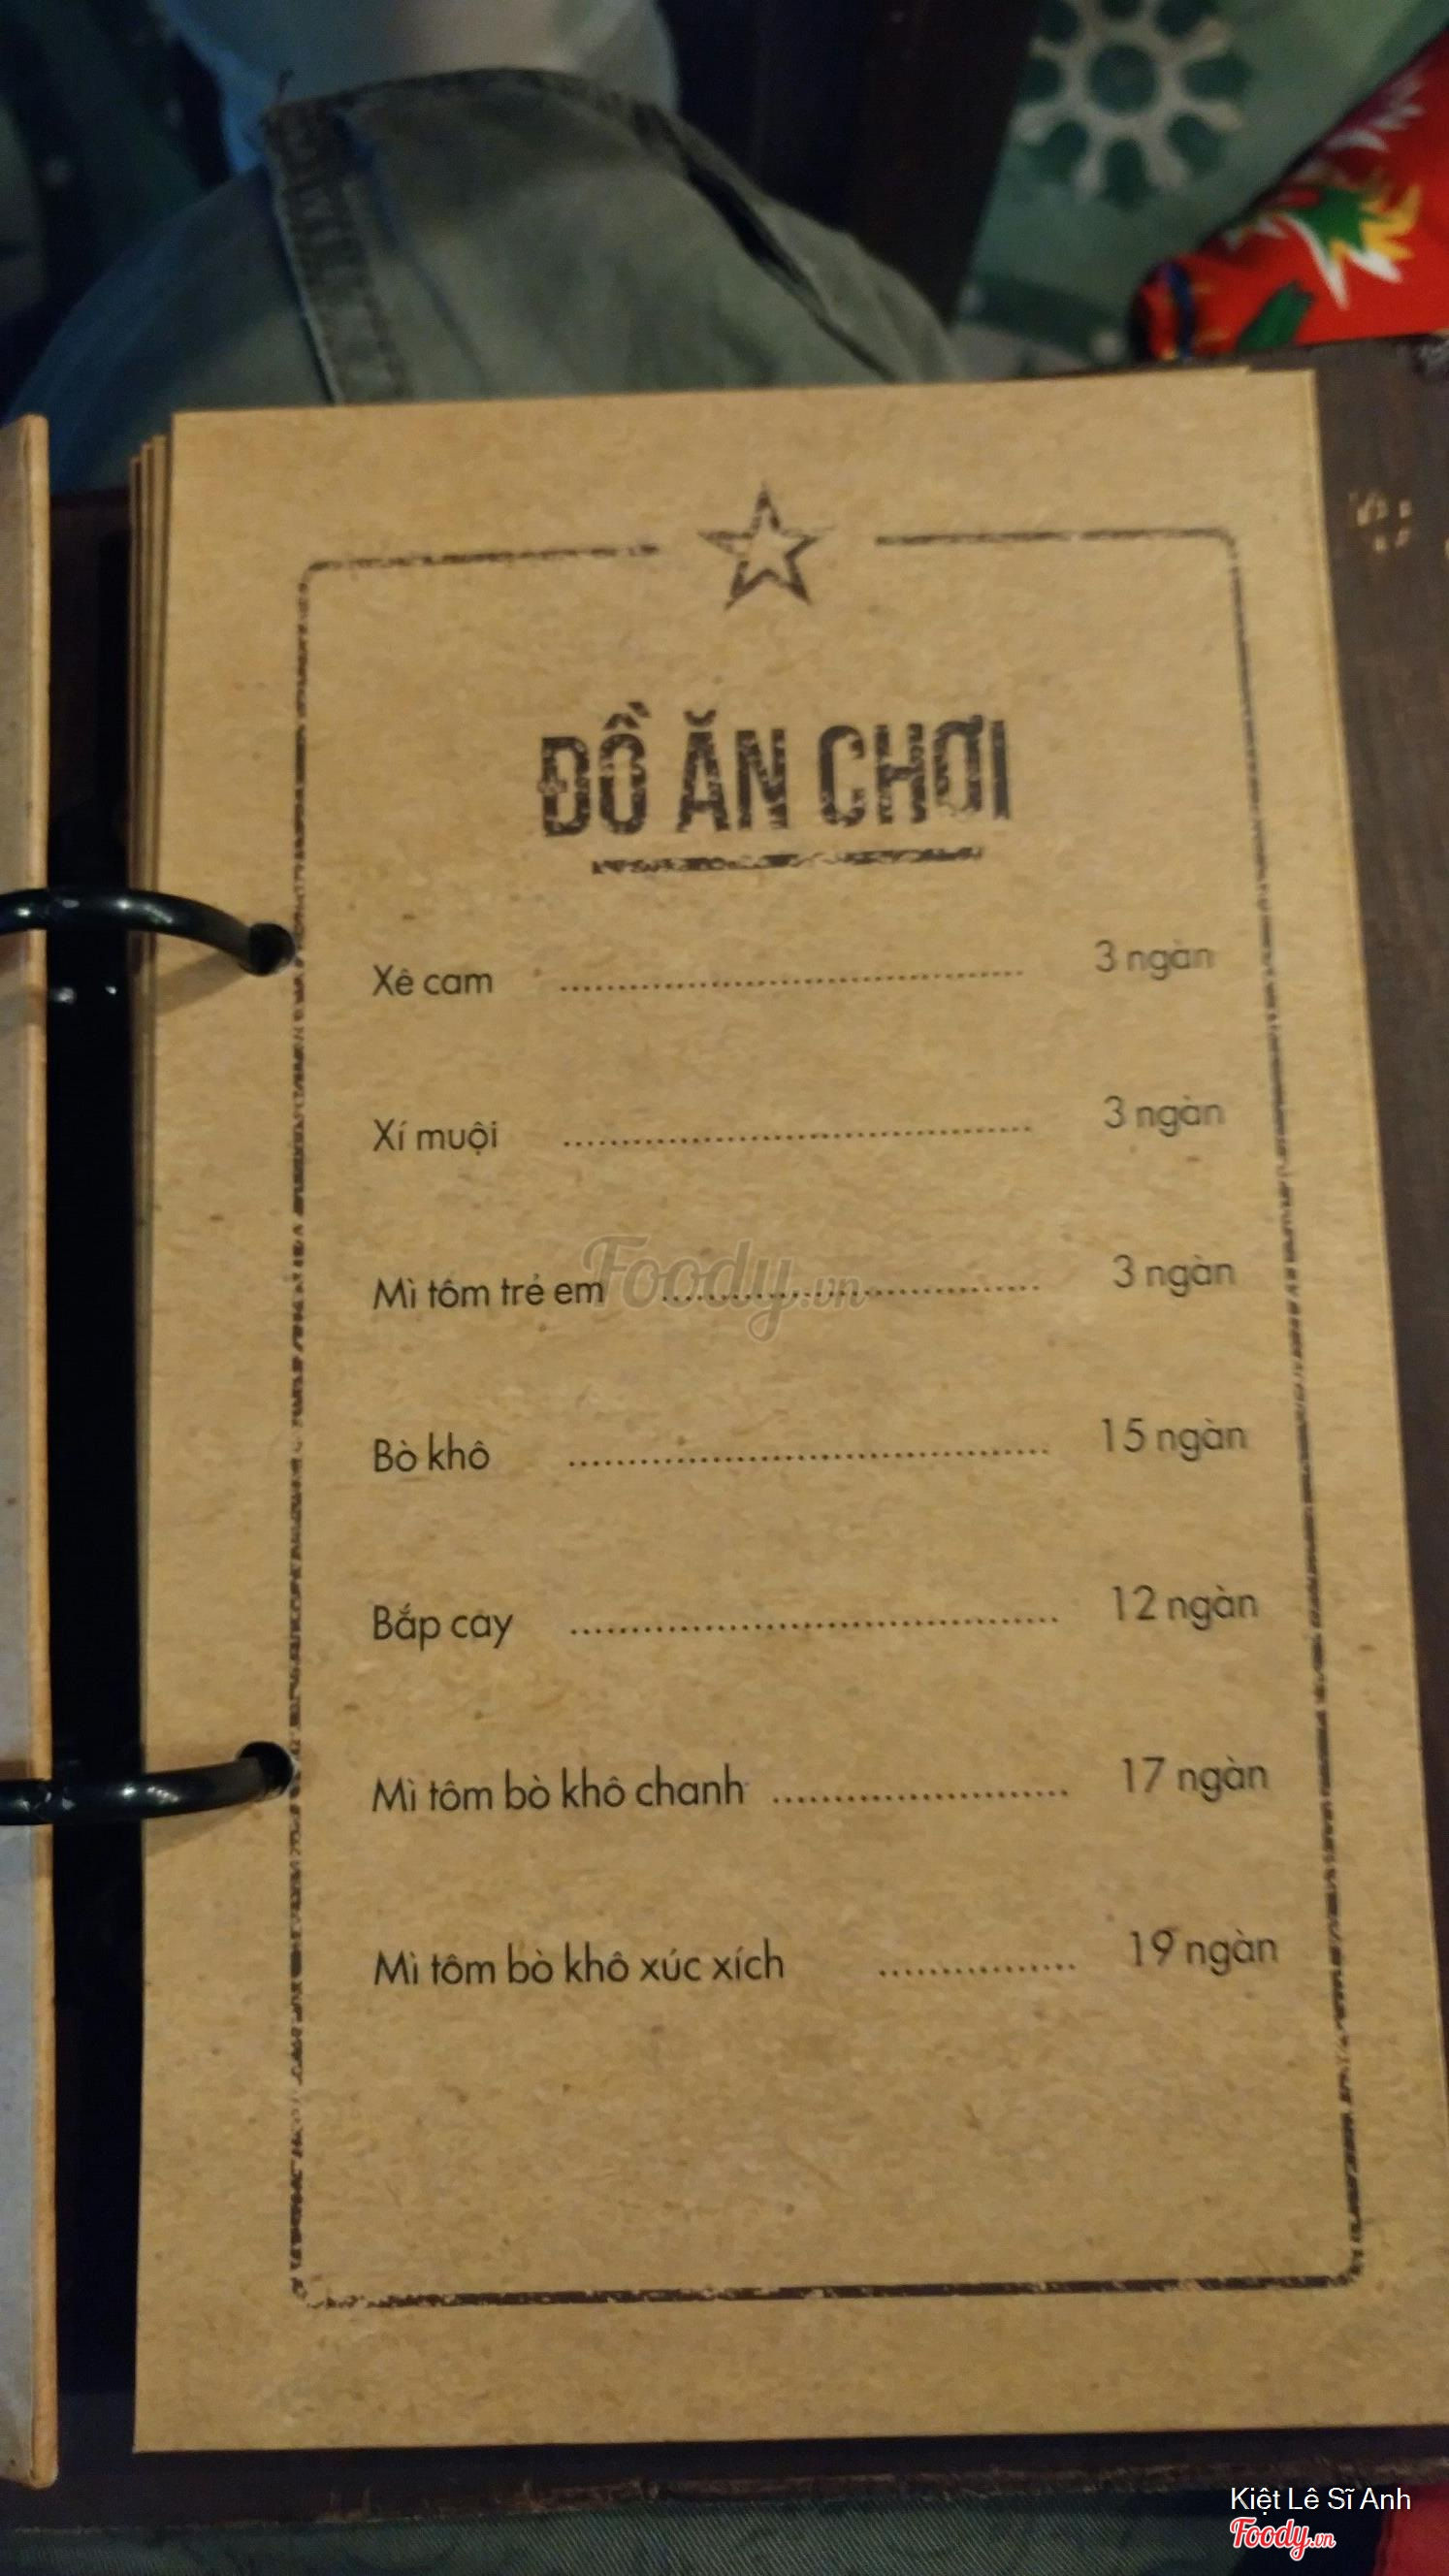 ĐỒ ĂN CHƠI
Xê cam ........................................ 3 ngàn
Xí muội ........................................ 3 ngàn
Mì tôm trẻ em ................................ 3 ngàn
Bò khô ........................................ 15 ngàn
Bắp cay ........................................ 12 ngàn
Mì tôm bò khô chanh ........................ 17 ngàn
Mì tôm bò khô xúc xích ................ 19 ngàn
Foody.vn
Kiệt Lê Sĩ Anh
Foody.vn